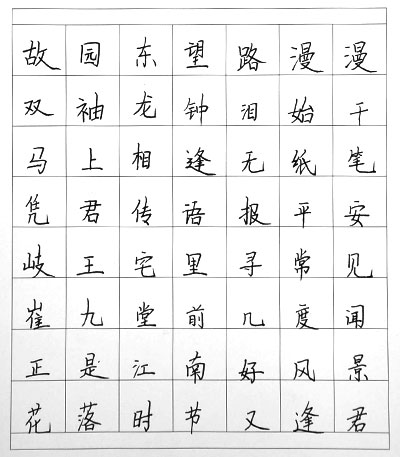 故园东望路漫漫
双袖龙钟泪始干
马上相逢无纸笔
凭君传语报平安
岐王宅里寻常见
崔九堂前几度闻
正是江南好风景
花落时节又逢君